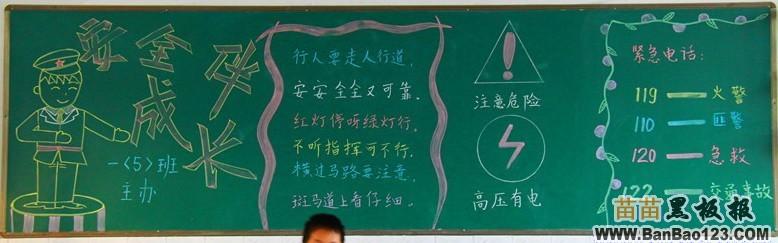 安全伴
成长
一<5>班
主办
行人要走人行道,
安安全全又可靠.
红灯停呀绿灯行,
不听指挥可不行.
横过马路要注意,
斑马道上看仔细.
注意危险
高压有电
紧急电话:
119 — 火警
110 — 匪警
120 — 急救
122 — 交通事故
苗苗黑板报
www.BanBao123.com